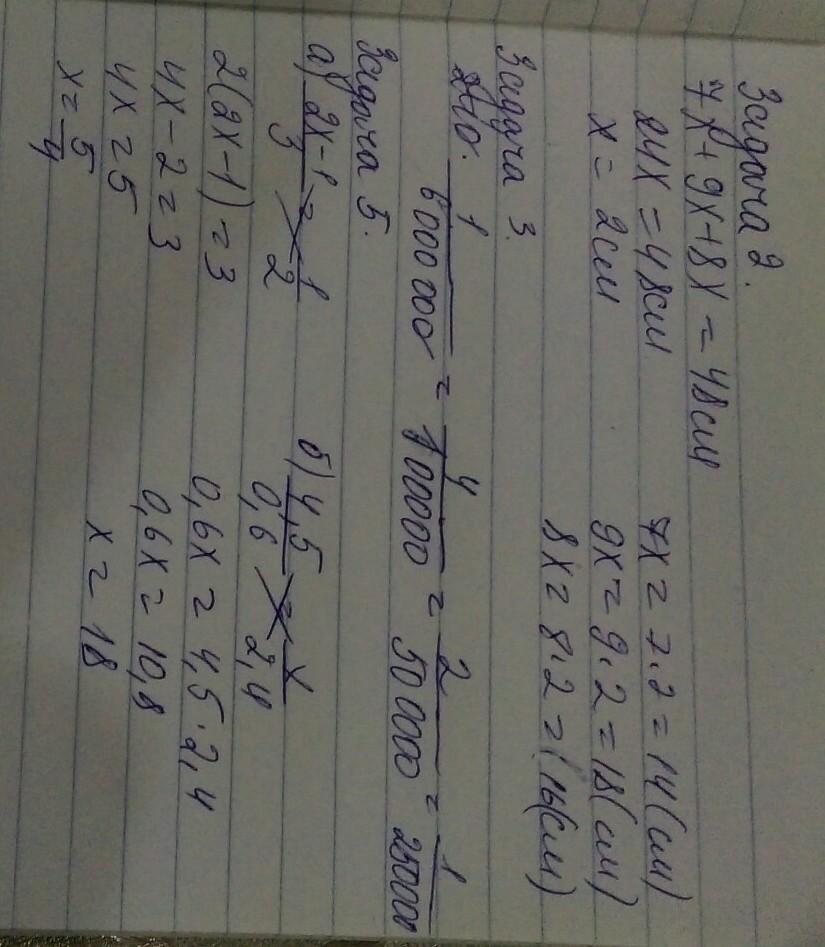 Задача 2.
7x + 9x + 8x = 48см
24x = 48см
x = 2см
7x = 7·2 = 14 (см)
9x = 9·2 = 18 (см)
8x = 8·2 = 16 (см)
Задача 3.
240· 1/6000 000 = 4/100000 = 2/50 000 = 1/25000
Задача 5.
а) 2x-1/3 = 1/2
2(2x-1) = 3
4x - 2 = 3
4x = 5
x = 5/4
б) 4,5/0,6 = x/2,4
0,6x = 4,5·2,4
0,6x = 10,8
x = 18